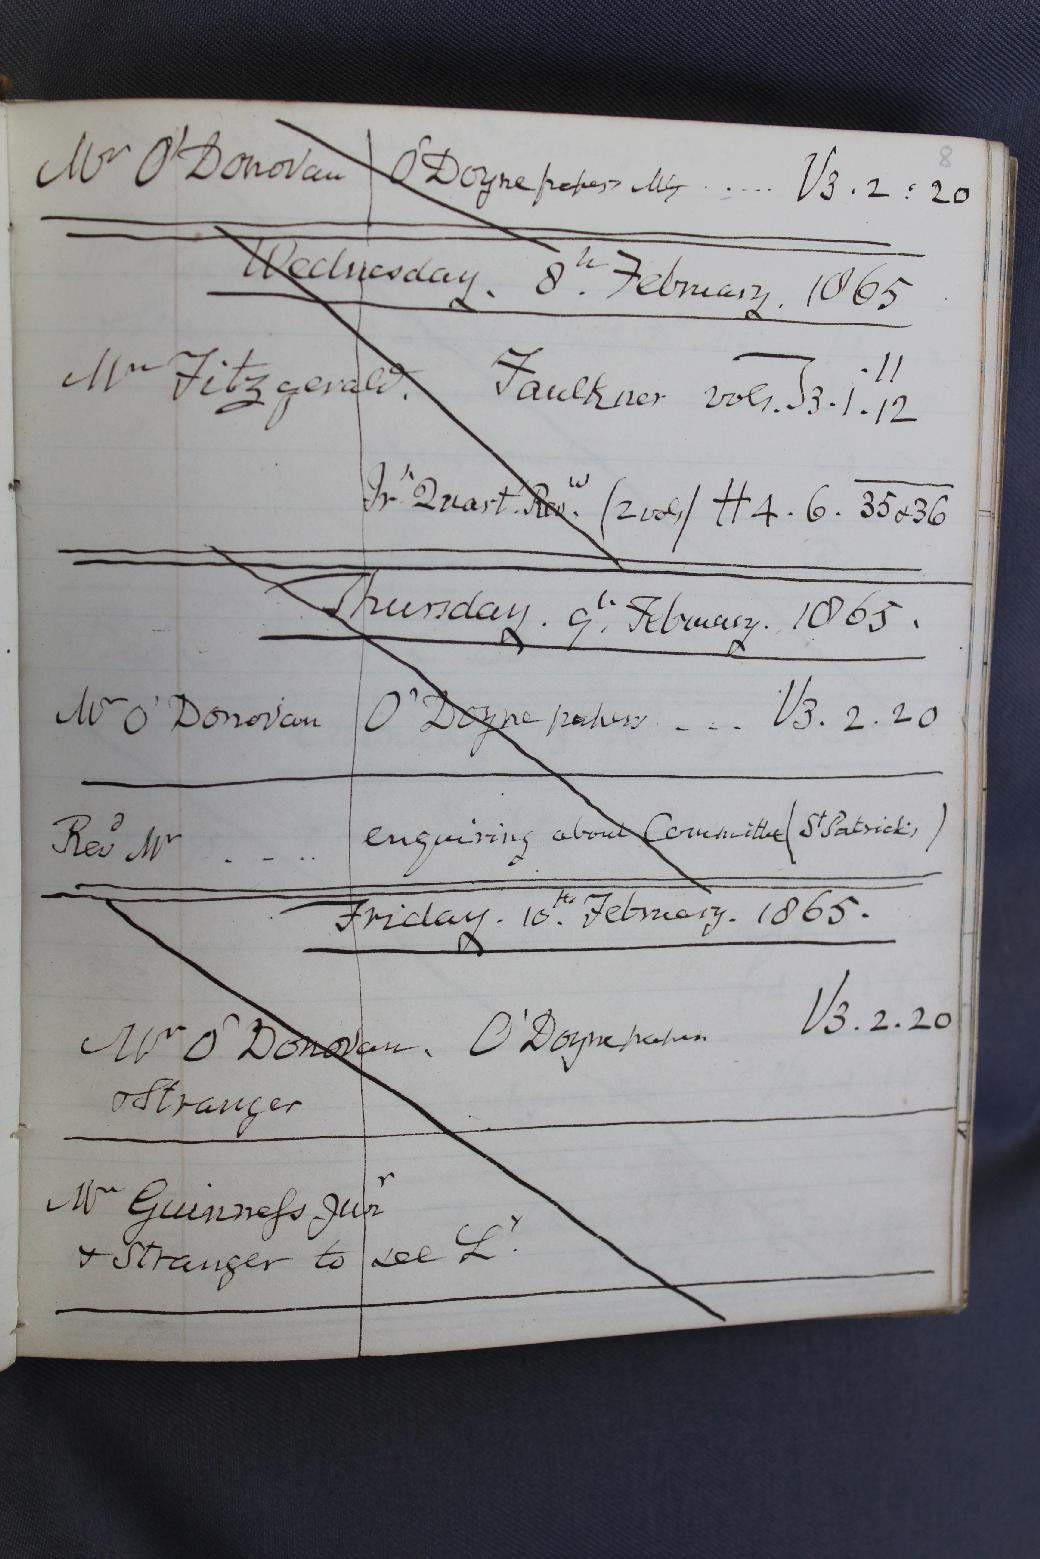 8
Mr O'Donovan O'Doyne papers MSS ..... V3.2:20
Wednesday. 8th. February. 1865
.11
Mr Fitzgerald. Faulkner vols. J3.1.12
Irh Quart. Revw. (2 vols) H4.6.35&36
Thursday. 9th. February. 1865.
Mr O'Donovan O'Doyne papers ... V3.2.20
Revd Mr .... enquiring about Committee (St Patrick's)
Friday. 10th. February. 1865.
Mr O'Donovan. O'Doyne papers V3.2.20
& Stranger
Mr Guinness Junr
& Stranger to see Ly.